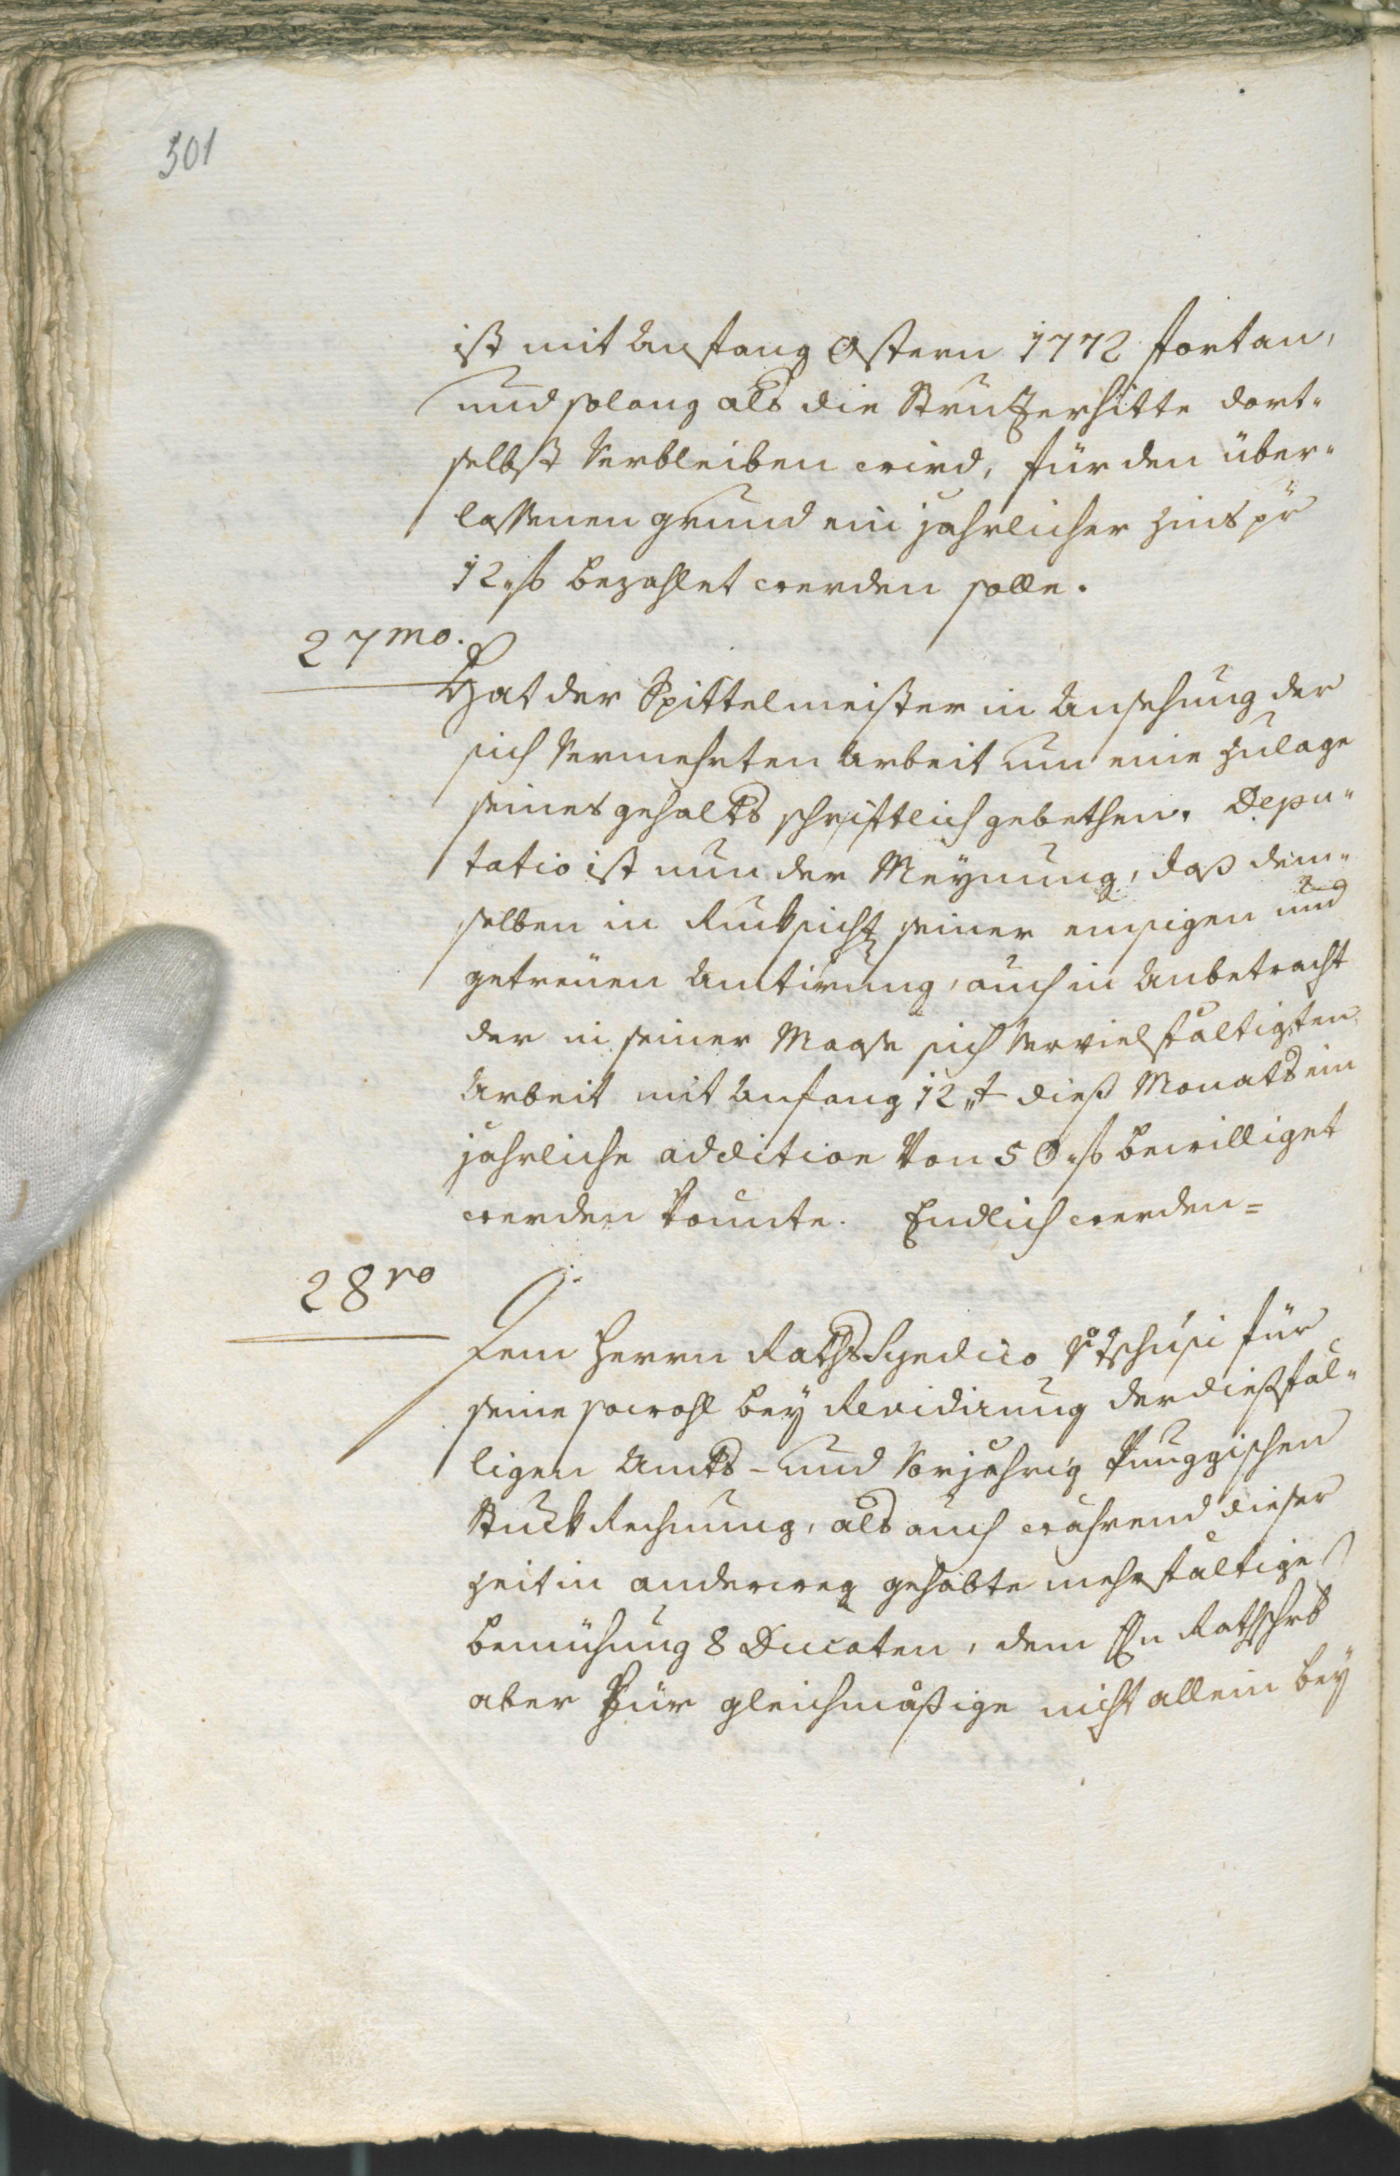 301
ist mit Anfang Ostern 1772 fortan,
und solang als die Strutzerhitte dort-
selbst Verbleiben wird, für den über-
lassenen grund ein jahrlicher Zins pr
12 f bezahlet werden solle.
27mo.
Hat der Spittelmeister in Ansehung der
sich Vermehrten Arbeit um eine Zulage
seines gehalts schriftlich gebethen. Depu-
tatio ist nun der Meynung, daß dem-
selben in Rucksicht seiner emsigen und
getreüen Amtirung, auch in Anbetracht
der in seiner Maaße sich Vervielfaltigten
Arbeit mit Anfang 12t dieß Monats ein
jahrliche addition Von 50 f bewilliget
werden konnte. Endlich werden=
28vo
Dem Herrn Raths Syndico für
seine sowohl bey Revidirung der dießfal-
ligen Amts- und Vorjahrig
Stuck Rechnung, als auch während dieser
Zeit in anderweg gehabte mehrfaltige
bemühung 8 Ducaten, dem Hn Rathschrb
aber für gleichmäßige nicht allein bey